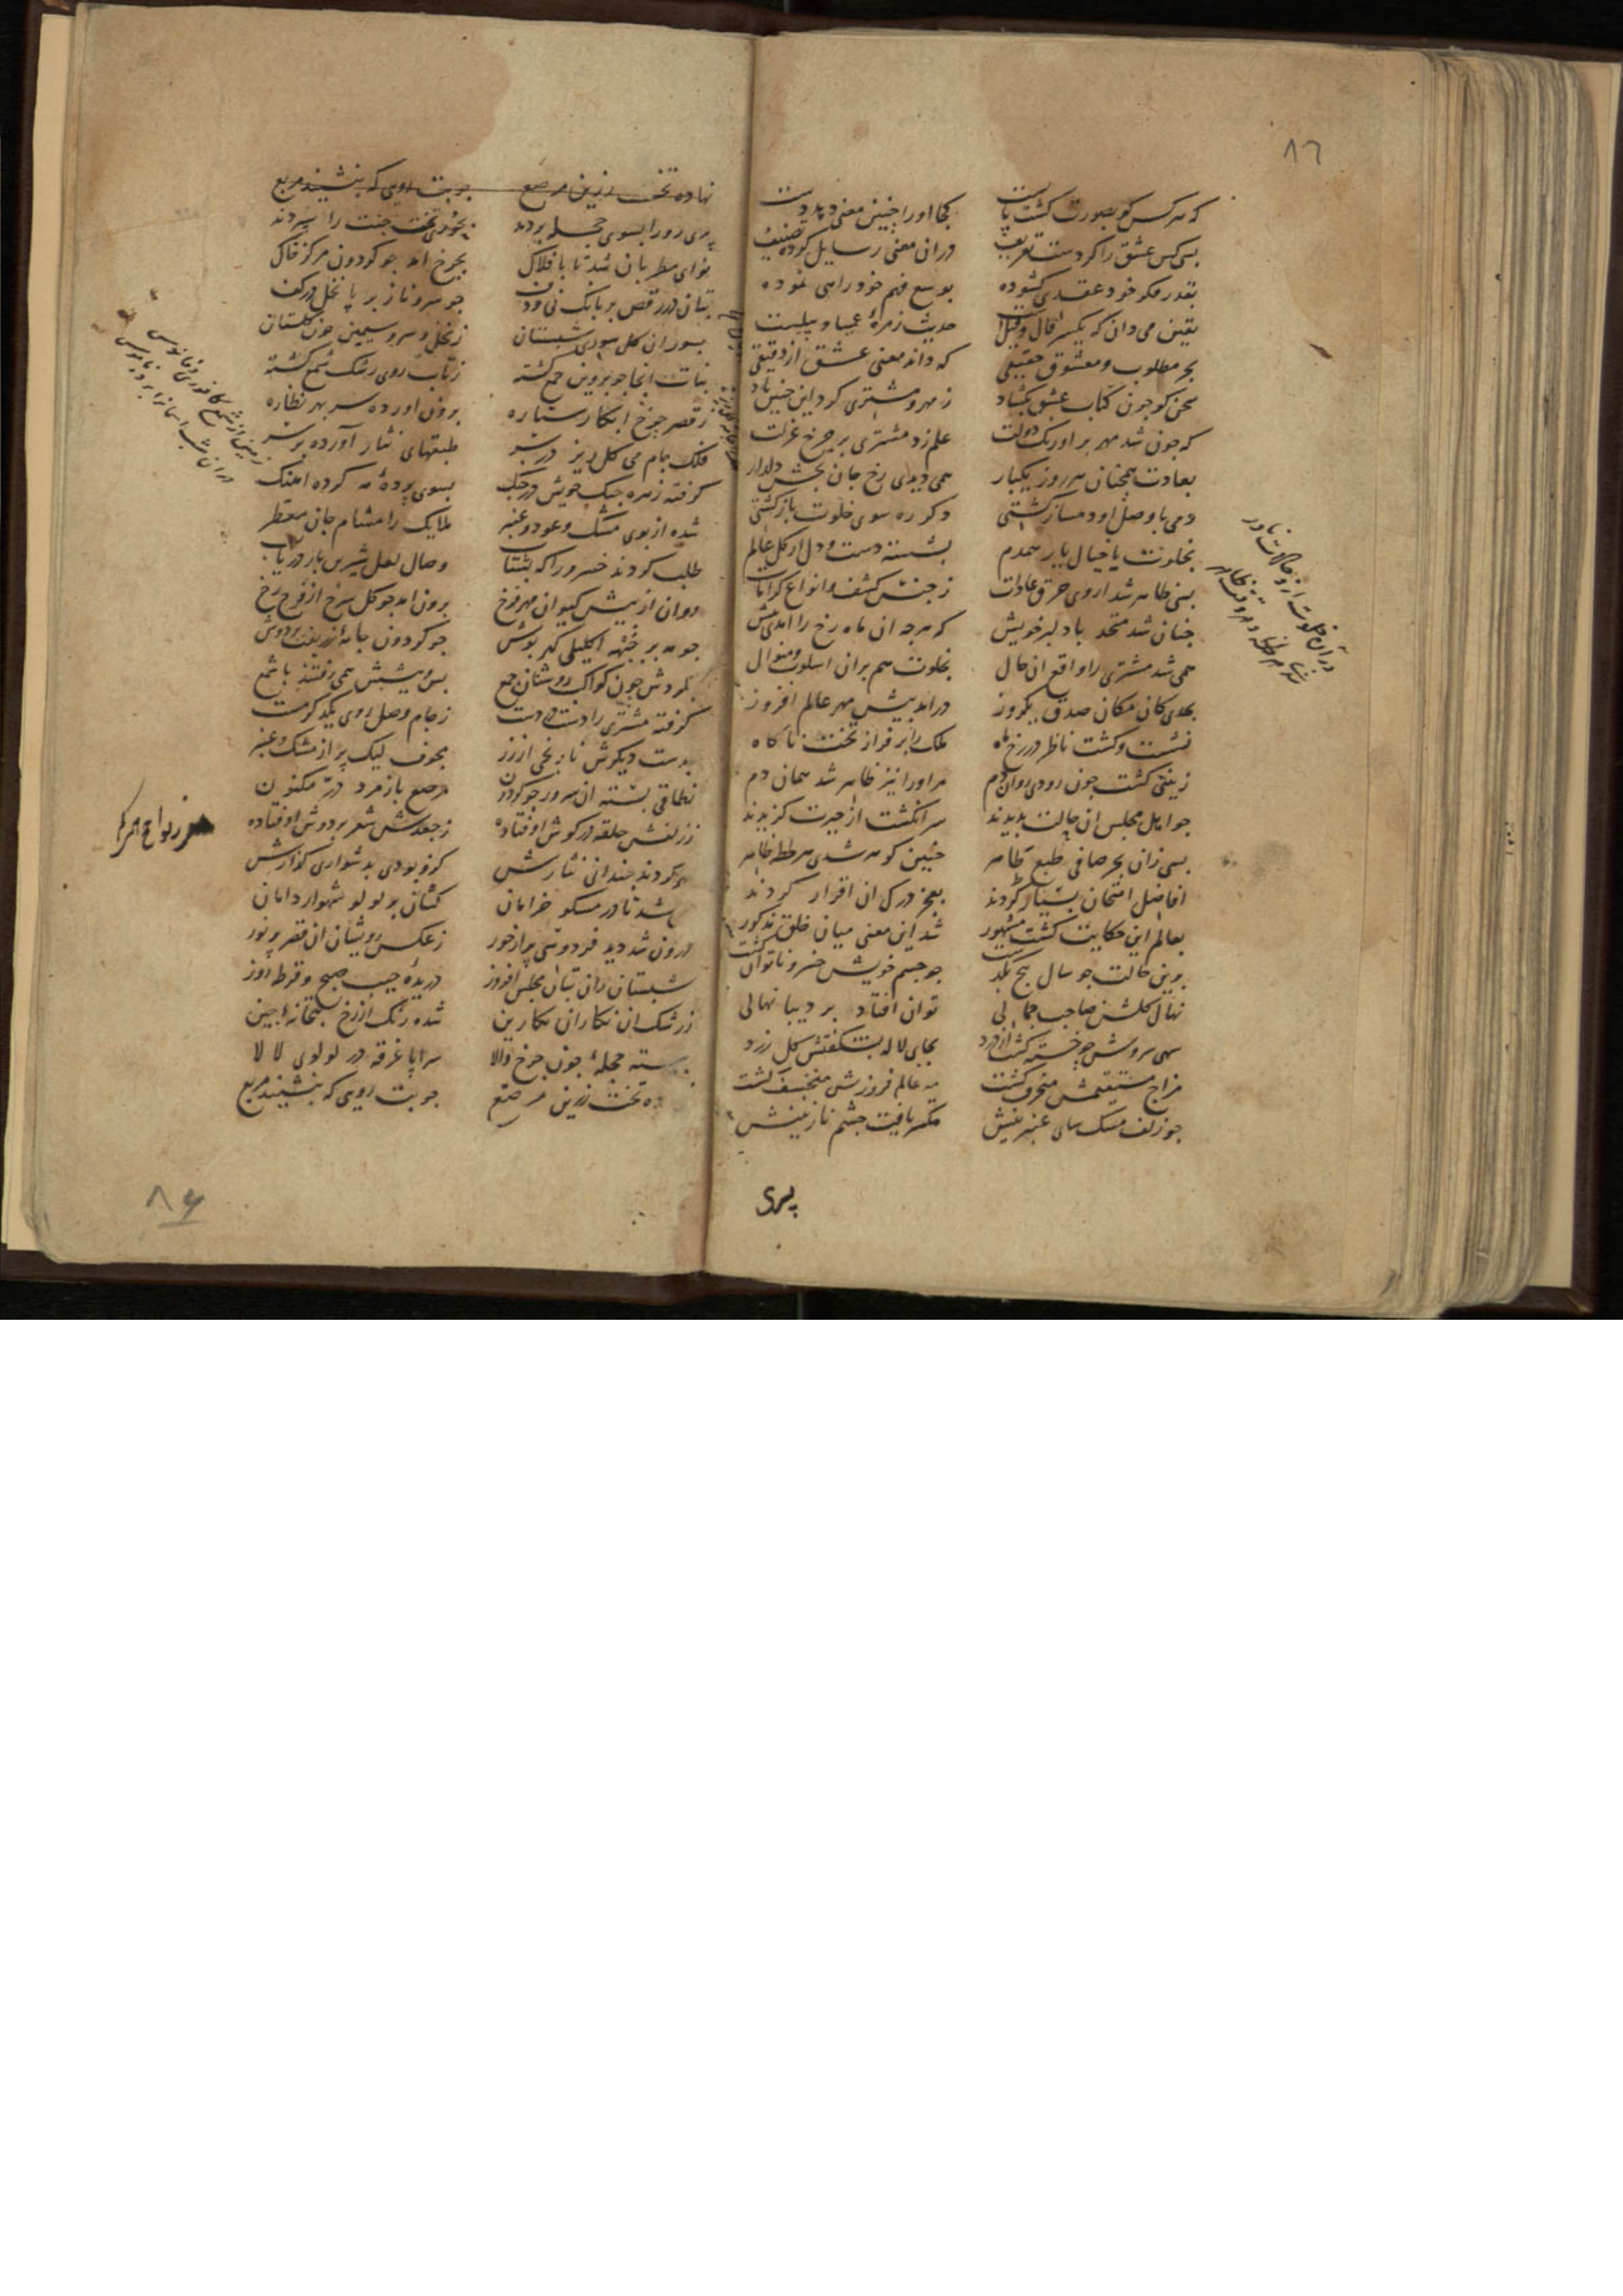 ٨٦
که هر کس کو بصورت گشت پابست کجا او را چنین معنی دهد دست
بسی کس عشق را کردست تعریف در ان معنی رسایل کرده تصنیف
بقدر فکر خود عقدی کشوده بوسع فهم خود راهی نموده
یقین می دان که یکسر قال و قیل حدیث زمرهٔ عمیا و پیلست
بجز مطلوب و معشوق حقیقی که داند معنی عشق از دقیقی
سخن کو جون کتاب عشق بکشاد ز مهر و مشتری کرد این جنین یاد
که جون شد مهر بر اورنک دولت علم زد مشتری بر جرخ عزلت
بعادت همجنان هر روز یکبار همی دیدی رخ جان بخش دلدار
دمی با وصل او دمساز کشتی دکر ره سوی خلوت باز کشتی
بخلوت با خیال یار همدم بشسته دست و دل از کل عالم
بسی ظاهر شد از وی خرق عادات ز جنس کشف و انواع کرامات
جنان شد متحد با دلبر خویش که هرجه ان ماه رخ را امدی پیش
همی شد مشتری را واقع ان حال بخلوت هم بران اسلوب و منوال
بحدی کان مکان صدق یکروز در امد پیش مهر عالم افروز
نشست و کشت ناظر در رخ ماه ملک را بر فراز تخت ناکاه
ز بینی کشت جون رودی روان دم مر او را نیز ظاهر شد همان دم
جو اهل مجلس ان حالت بدیدند سر انکشت از حیرت کزیدند
بسی زان بحر صافی طبع طاهر جنین کوهر شدی هر لحظه ظاهر
افاضل امتحان بسیار کردند بعجز درک ان اقرار کردند
بعالم این حکایت کشت مشهور شد این معنی میان خلق مذکور
برین حالت جو سال پنج بکذشت جو جسم خویش خسرو ناتوان کشت
نهال کلشن صاحب جمالی توان افتاد بر دیبا نهالی
سهی سروش جو خسته کشت از درد بجای لاله بشکفتش کل زرد
مزاج مستقیمش منحرف کشت مه عالم فروزش منخسف کشت
جو زلف مشک سای عنبرینش مکسر یافت جشم نازنینش
پری
در آن خلوت از حالات نادر
شدی هر لحظه
نهاده تخت زرین مرصع جو بت رویی که بنشیند مربع
پری رو را بسوی حجله بردند بحوری تخت جنت را سپردند
نوای مطربان شد تا بافلاک بجرخ امد جو کردون مرکز خاک
بتان در رقص بر بانک نی و دف جو سرو ناز بر پا نخل در کف
ز نخل و سرو سیمین جون کلستان
بنات انجا جو پروین جمع کشته ز تاب روی رشک شمع کشته
ز قصر جرخ ابکار ستاره برون اورده سر بهر نظاره
فلک جام می کل ریز در سر طبقهای نثار آورده بر سر
کرفته زهره جنک خویش در جنک بسوی پردهٔ مه کرده اهنک
شده از بوی مشک و عود و عنبر ملایک را مشام جان معطر
طلب کردند خسرو را که بشتاب وصال لعل شیرین بار دریاب
روان از پیش کیوان مهر فرخ برون امد جو کل سرخ از فرح رخ
جو مه بر جبهه اکلیلی کهر پوش جو کردون جامهٔ زربفت بر دوش
بکردش جون کواکب روشنان جمع پس و پیشش همی رفتند با شمع
کرفته مشتری را دست در دست ز جام وصل روی یکدکر مست
بدست دیکرش نارنجی از زر مجوف لیک پر از مشک و عنبر
نطاقی بسته ان سرور جو کردون مرصع با زمرد در مکنون
ز زلفش حلقه در کوش اوفتاده ز جعدش شعر بر دوش اوفتاده
کردند جندانی نثارش کزو بودی بدشواری کذارش
شد تا در مشکو خرامان کشان بر لولو شهوار دامان
درون شد دید فردوسی پر از حور ز عکس روشان ان قصر پر نور
شبستان زان بتان مجلس افروز دریده جیب صبح و قرطه روز
ز رشک ان نکاران نکارین شده رنک از رخ بتخانه چین
بسته حجلهٔ جون جرخ والا سراپا غرقه در لولوی لالا
ده تخت زرین مرصع جو بت رویی که بنشیند مربع
زمین از شمع کافوری و فانوسی
در ان شب اسمانرا
٨۶